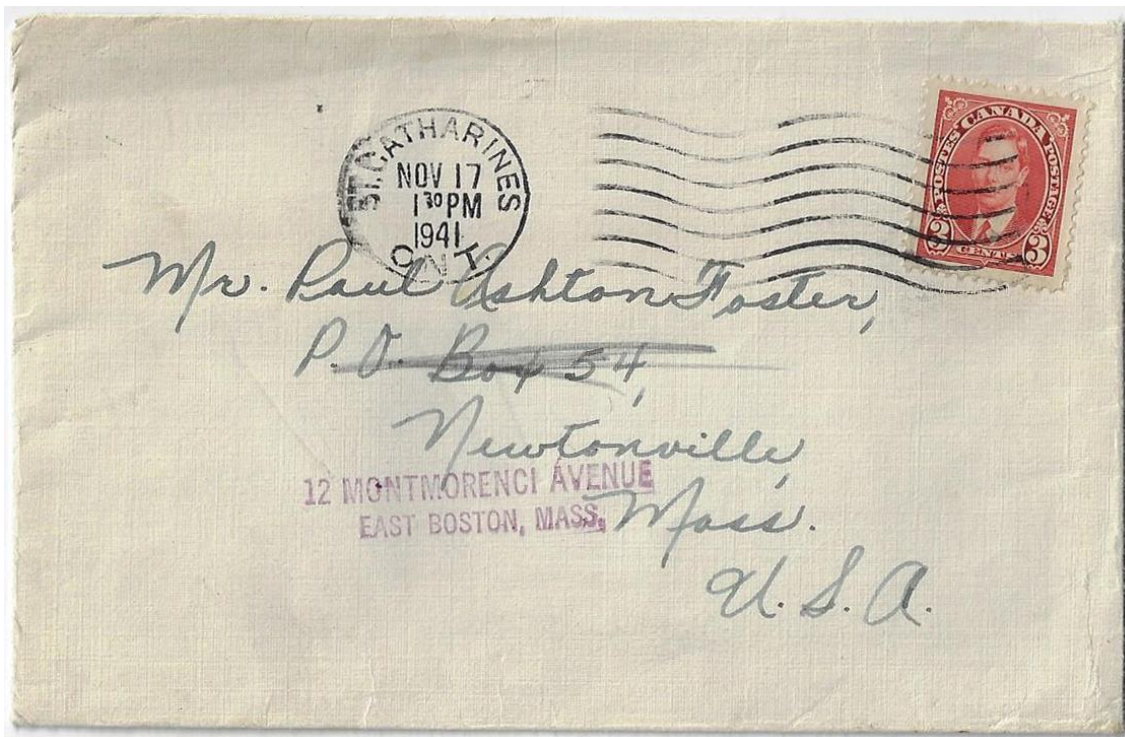 ST. CATHARINES
NOV 17
1 30 PM
1941
ONT.
POSTES CANADA POSTAGE
3 CENTS 3
Mr. Paul Ashton Foster,
P.O. Box 54,
Newtonville,
12 MONTMORENCI AVENUE
EAST BOSTON, MASS.
Mass.
U.S.A.